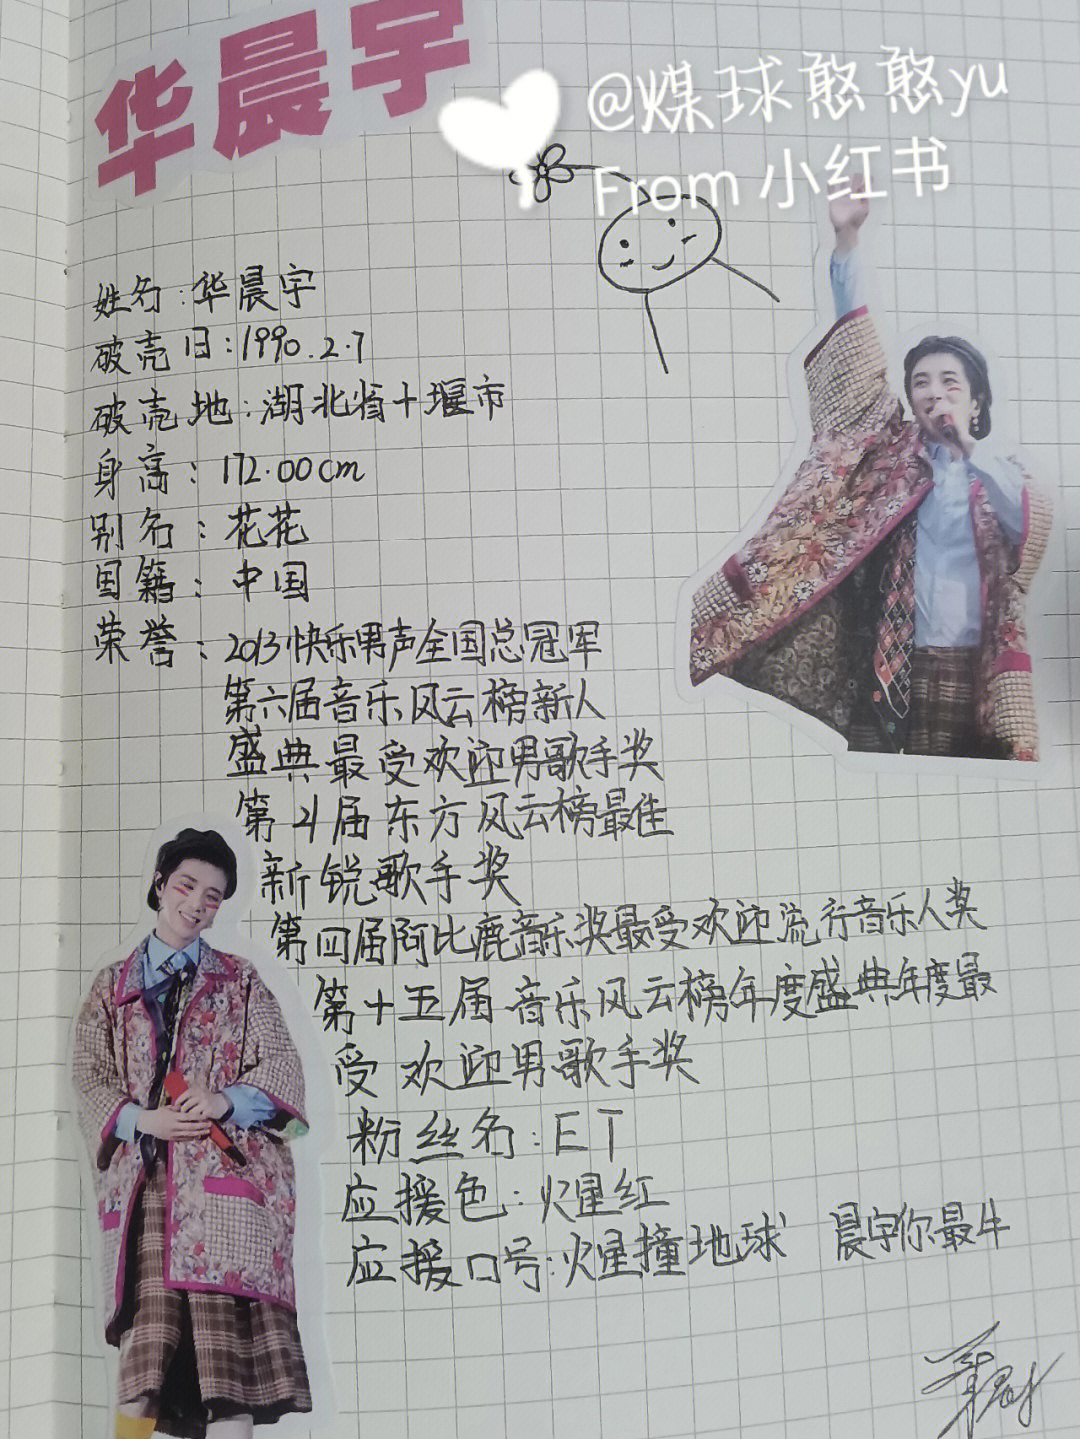 华晨宇
@煤球憨憨yu
From 小红书
姓名:华晨宇
破壳日:1990.2.7
破壳地:湖北省十堰市
身高:172.00cm
别名:花花
国籍:中国
荣誉:2013快乐男声全国总冠军
第六届音乐风云榜新人
盛典最受欢迎男歌手奖
第21届东方风云榜最佳
新锐歌手奖
第四届阿比鹿音乐奖最受欢迎流行音乐人奖
第十五届音乐风云榜年度盛典年度最
受欢迎男歌手奖
粉丝名:ET
应援色:火星红
应援口号:火星撞地球 晨宇你最牛